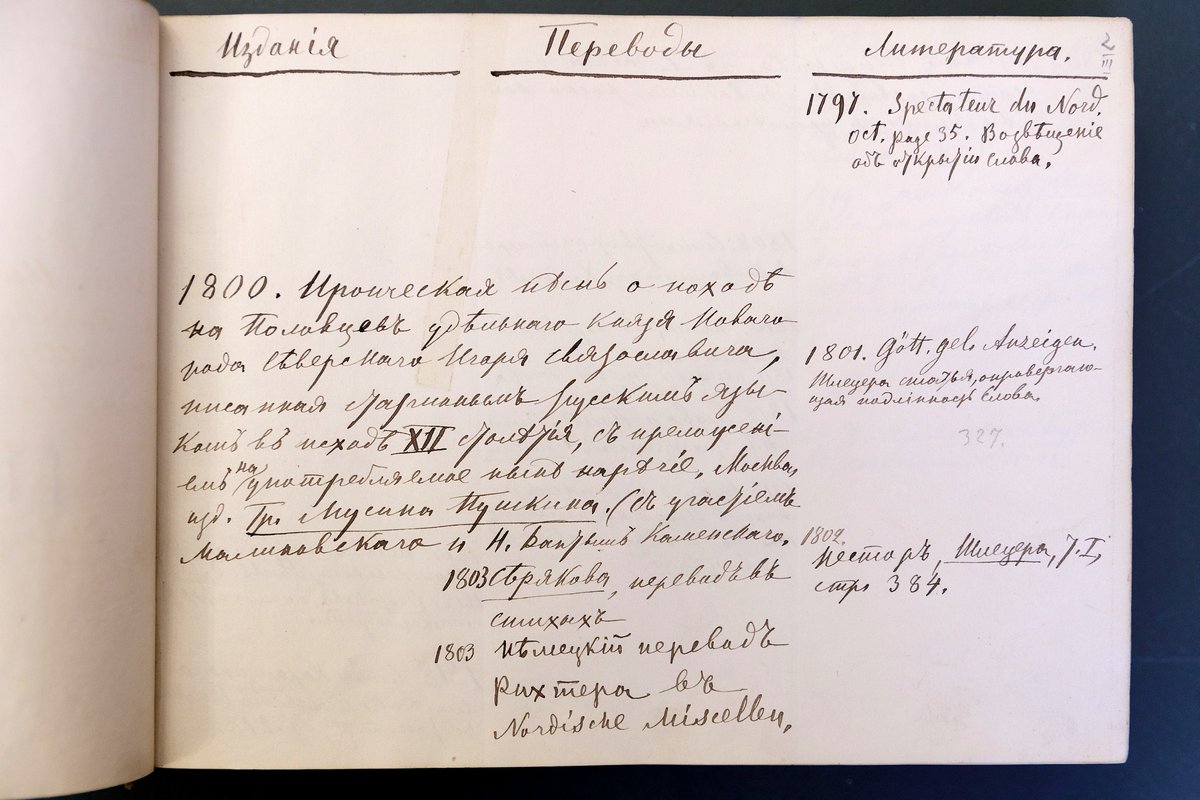 Изданія
Переводы
Литература.
1797. Spectateur du Nord.
oct. page 35. Возвѣщеніе
объ открытіи слова.
1800. Ироическая пѣснь о походѣ
на Половцевъ удѣльнаго князя Новаго
рода Сѣверскаго Игоря Святославича,
писанная стариннымъ русскимъ язы-
комъ въ исходѣ XII столѣтія, съ преложені-
емъ на употребляемое нынѣ нарѣчіе, Москва,
изд. Гр. Мусина Пушкина. (съ участіемъ
Малиновскаго и Н. Бантышъ Каменскаго.
1803 Сѣрякова, переводъ въ
стихахъ
1803 нѣмецкій переводъ
Рихтера въ
Nordische Miscellen,
1801. Gött. gel. Anzeigen.
Шлецера статья, опровергаю-
щая подлинность Слова.
327.
1802.
Несторъ, Шлецера, т. I,
стр 384.